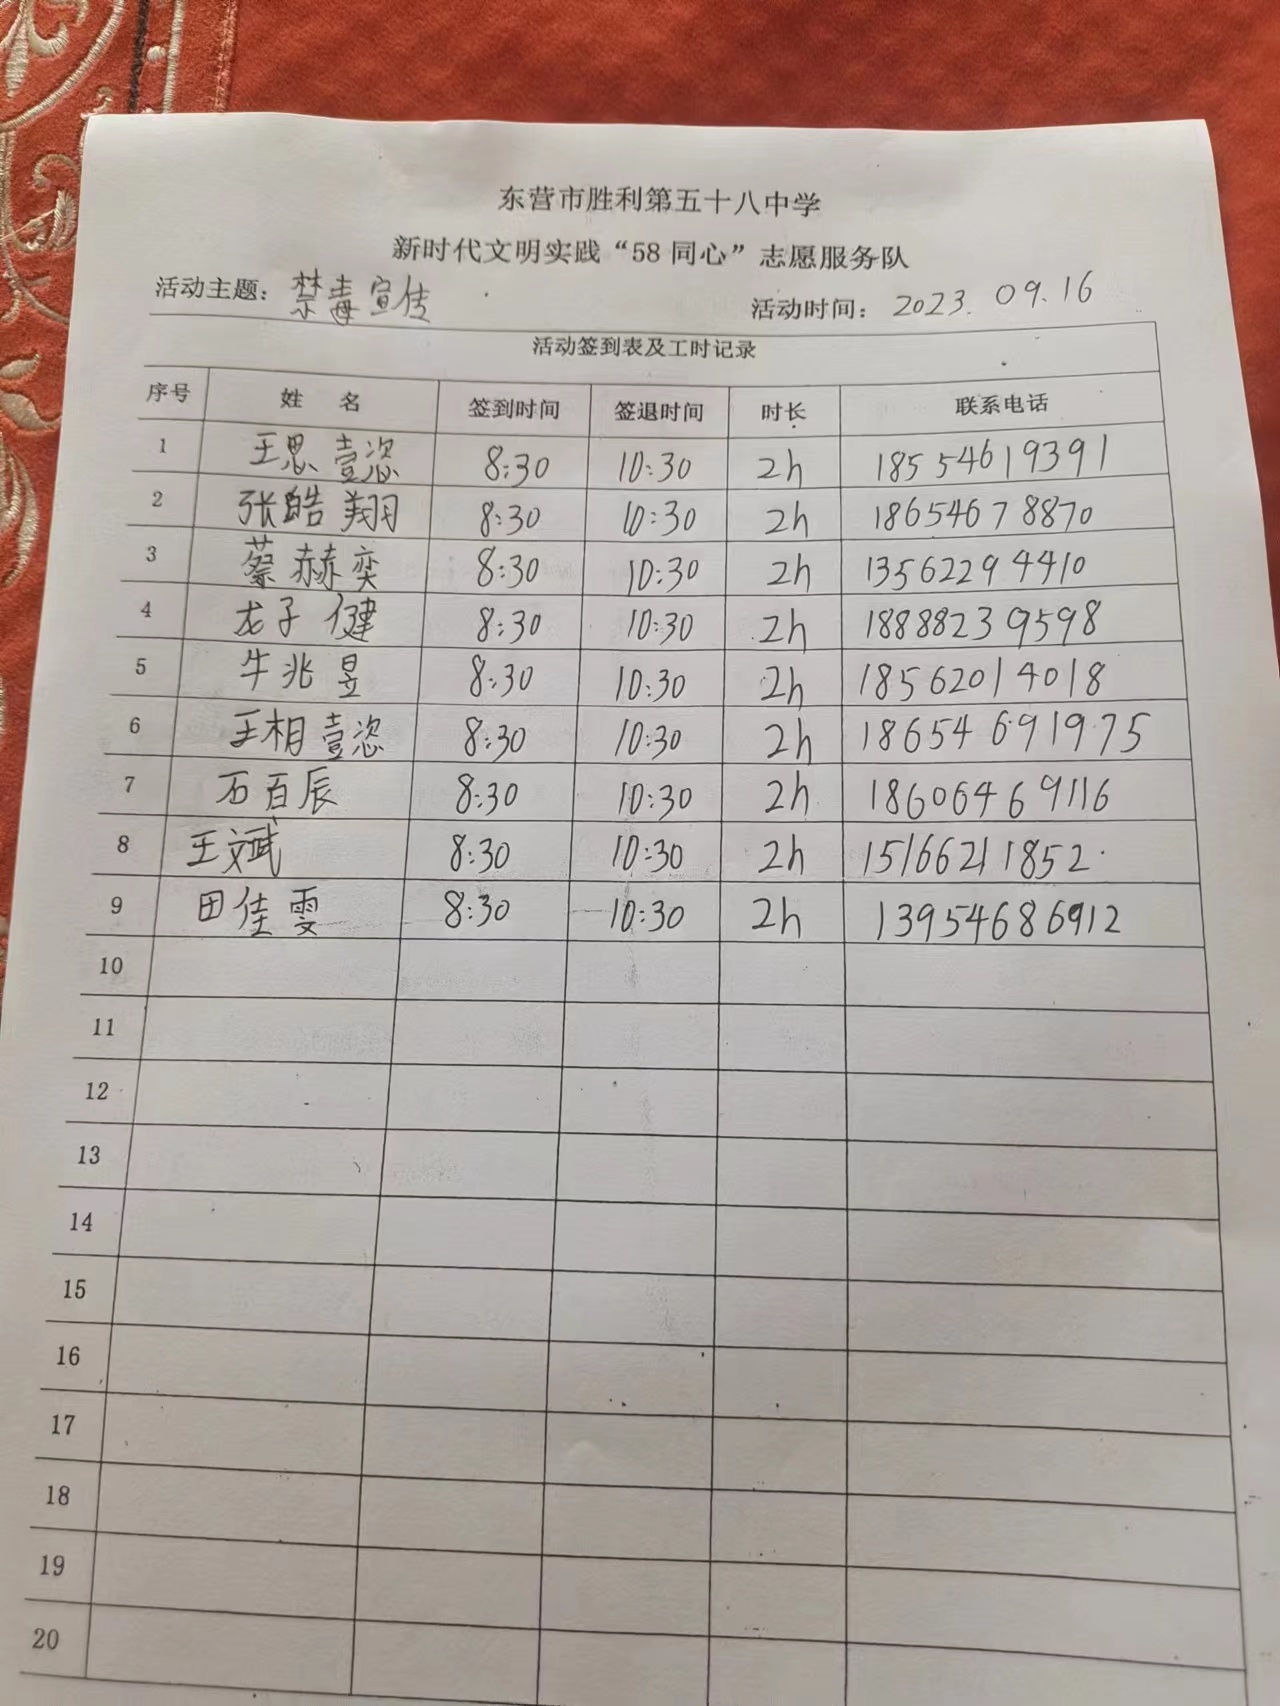 东营市胜利第五十八中学
新时代文明实践“58同心”志愿服务队
活动主题：禁毒宣传 活动时间：2023.09.16
活动签到表及工时记录
序号 姓 名 签到时间 签退时间 时长 联系电话
1 王思壹恣 8:30 10:30 2h 18554619391
2 张皓翔 8:30 10:30 2h 18654678870
3 蔡赫奕 8:30 10:30 2h 13562294410
4 龙子健 8:30 10:30 2h 18888239598
5 牛兆昱 8:30 10:30 2h 18562014018
6 王相壹恣 8:30 10:30 2h 18654691975
7 石百辰 8:30 10:30 2h 18606469116
8 王斌 8:30 10:30 2h 15166211852
9 田佳雯 8:30 10:30 2h 13954686912
10
11
12
13
14
15
16
17
18
19
20